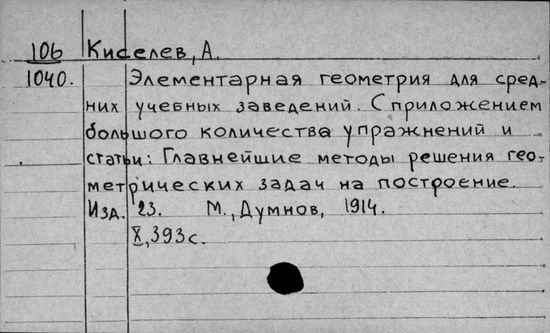 106 Киселев, А.
1040. Элементарная геометрия для сред-
них учебных заведений. С приложением
большого количества упражнений и
статьи: Главнейшие методы решения гео-
метрических задач на построение.
Изд. 23. М., Думнов, 1914.
X, 393 с.